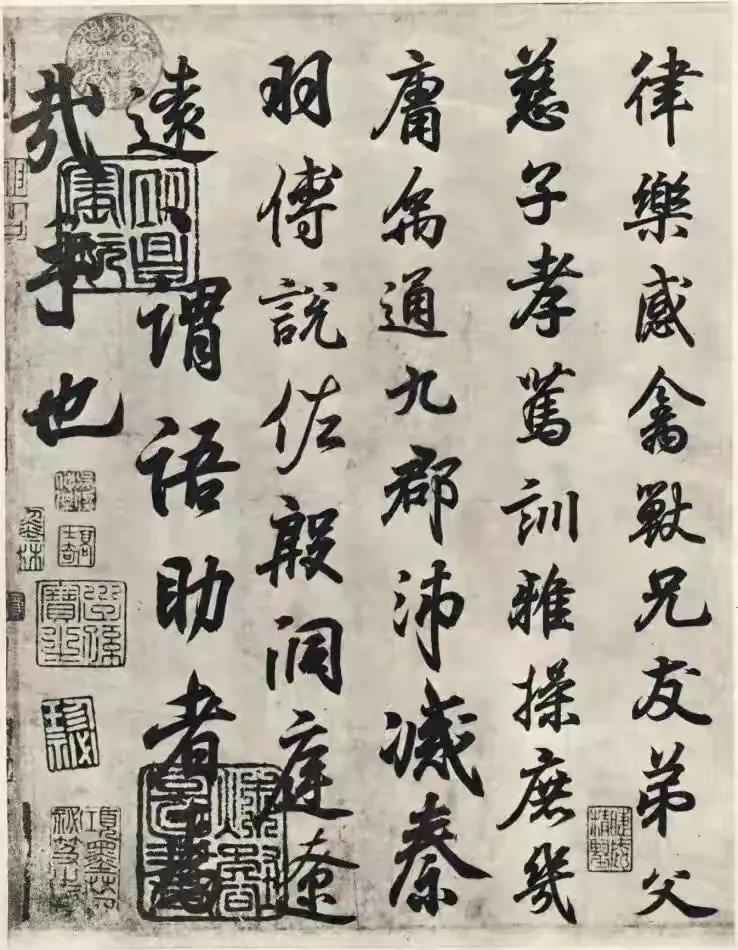 律樂感禽獸兄友弟父
慈子孝篤訓雅操庶幾
庸禹通九郡沛滅秦
羽傅說佐殷洞庭遼
遠謂語助者焉
哉乎也